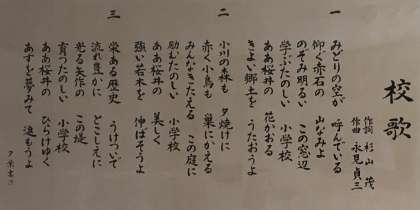 校歌
作詞 杉山 茂
作曲 永見貞三
一
みどりの空が 呼んでいる
仰ぐ赤石の 山なみよ
のぞみ明るい この窓辺
学ぶたのしい 小学校
ああ桜井の 花かおる
きよい郷土を うたおうよ
二
小川の森も 夕焼けに
赤く小鳥も 巣にかえる
みんなきたえる この庭に
励むたのしい 小学校
ああ桜井の 美しく
強い若木を 伸ばそうよ
三
栄ある歴史 うけついで
流れ豊かに とこしえに
光る矢作の この堤
育つたのしい 小学校
ああ桜井の ひらけゆく
あすを夢みて 進もうよ